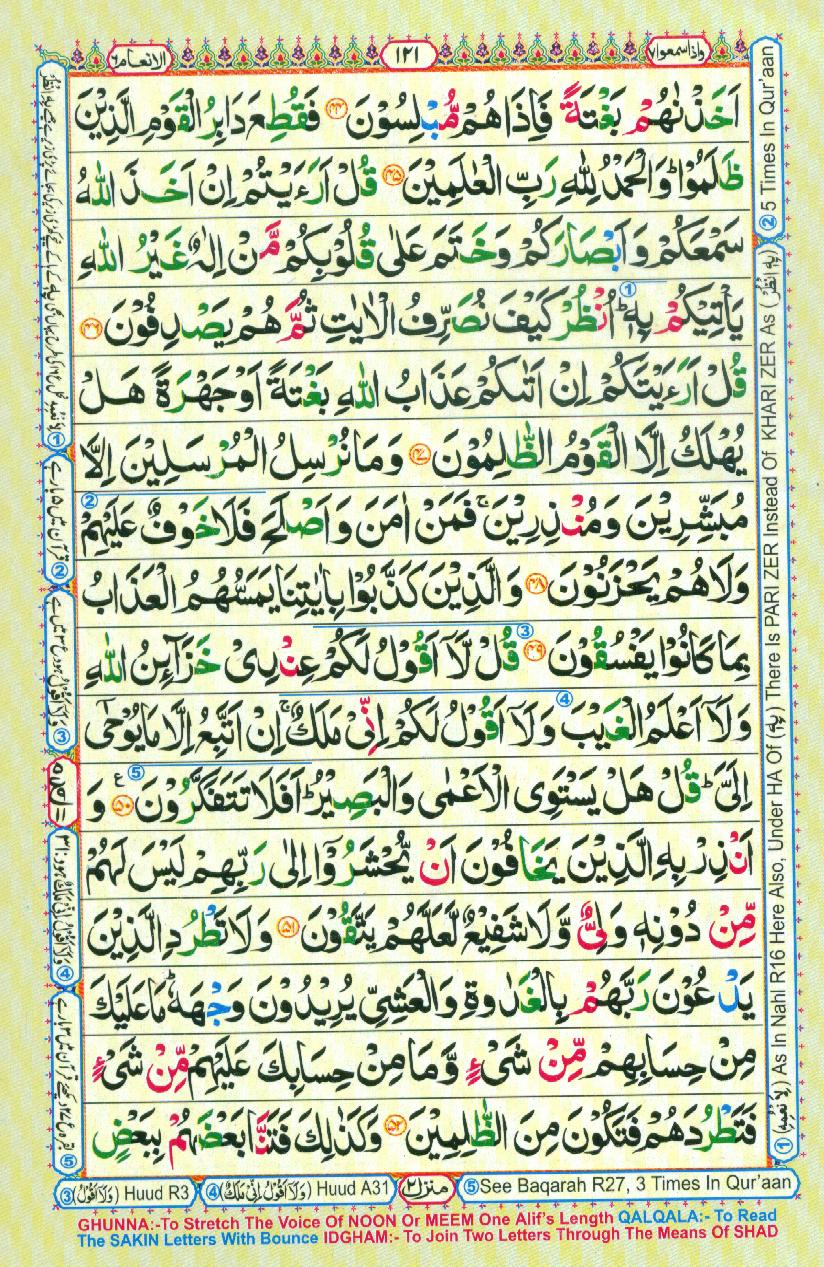 الانعام ٦
١٢١
واذاسمعوا ٧
اَخَذْنٰهُمْ بَغْتَةً فَاِذَا هُمْ مُّبْلِسُوْنَ ۴۴ فَقُطِعَ دَابِرُ الْقَوْمِ الَّذِيْنَ
ظَلَمُوْا ؕ وَالْحَمْدُ لِلّٰهِ رَبِّ الْعٰلَمِيْنَ ۴۵ قُلْ اَرَءَيْتُمْ اِنْ اَخَذَ اللّٰهُ
سَمْعَكُمْ وَاَبْصَارَكُمْ وَخَتَمَ عَلٰى قُلُوْبِكُمْ مَّنْ اِلٰهٌ غَيْرُ اللّٰهِ
يَاْتِيْكُمْ بِهٖ ؕ اُنْظُرْ كَيْفَ نُصَرِّفُ الْاٰيٰتِ ثُمَّ هُمْ يَصْدِفُوْنَ ۴۶
قُلْ اَرَءَيْتَكُمْ اِنْ اَتٰىكُمْ عَذَابُ اللّٰهِ بَغْتَةً اَوْ جَهْرَةً هَلْ
يُهْلَكُ اِلَّا الْقَوْمُ الظّٰلِمُوْنَ ۴۷ وَمَا نُرْسِلُ الْمُرْسَلِيْنَ اِلَّا
مُبَشِّرِيْنَ وَمُنْذِرِيْنَ ۚ فَمَنْ اٰمَنَ وَاَصْلَحَ فَلَا خَوْفٌ عَلَيْهِمْ
وَلَا هُمْ يَحْزَنُوْنَ ۴۸ وَالَّذِيْنَ كَذَّبُوْا بِاٰيٰتِنَا يَمَسُّهُمُ الْعَذَابُ
بِمَا كَانُوْا يَفْسُقُوْنَ ۴۹ قُلْ لَّاۤ اَقُوْلُ لَكُمْ عِنْدِىْ خَزَآئِنُ اللّٰهِ
وَلَاۤ اَعْلَمُ الْغَيْبَ وَلَاۤ اَقُوْلُ لَكُمْ اِنِّىْ مَلَكٌ ۚ اِنْ اَتَّبِعُ اِلَّا مَا يُوْحٰۤى
اِلَىَّ ؕ قُلْ هَلْ يَسْتَوِى الْاَعْمٰى وَالْبَصِيْرُ ؕ اَفَلَا تَتَفَكَّرُوْنَ ۵۰ ع وَ
اَنْذِرْ بِهِ الَّذِيْنَ يَخَافُوْنَ اَنْ يُّحْشَرُوْۤا اِلٰى رَبِّهِمْ لَيْسَ لَهُمْ
مِّنْ دُوْنِهٖ وَلِىٌّ وَّلَا شَفِيْعٌ لَّعَلَّهُمْ يَتَّقُوْنَ ۵۱ وَلَا تَطْرُدِ الَّذِيْنَ
يَدْعُوْنَ رَبَّهُمْ بِالْغَدٰوةِ وَالْعَشِىِّ يُرِيْدُوْنَ وَجْهَهٗ ؕ مَا عَلَيْكَ
مِنْ حِسَابِهِمْ مِّنْ شَىْءٍ وَّمَا مِنْ حِسَابِكَ عَلَيْهِمْ مِّنْ شَىْءٍ
فَتَطْرُدَهُمْ فَتَكُوْنَ مِنَ الظّٰلِمِيْنَ ۵۲ وَكَذٰلِكَ فَتَنَّا بَعْضَهُمْ بِبَعْضٍ
② 5 Times In Qur'aan
① As In Nahl R16 Here Also, Under HA Of (بِهٖ) There Is PARI ZER Instead Of KHARI ZER As (بِهِ انْظُرْ)
② قرآن میں ۵ بارہے
③ (وَلَآ اَقُوْلُ) Huud R3
④ (وَلَآ اَقُوْلُ اِنِّىْ مَلَكٌ) Huud A31
منزل ٢
⑤ See Baqarah R27, 3 Times In Qur'aan
GHUNNA:-To Stretch The Voice Of NOON Or MEEM One Alif's Length QALQALA:- To Read
The SAKIN Letters With Bounce IDGHAM:- To Join Two Letters Through The Means Of SHAD